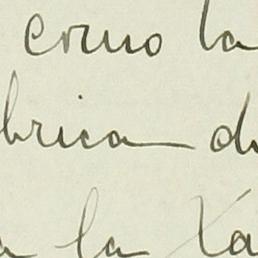 como la
brica d
a la Xa